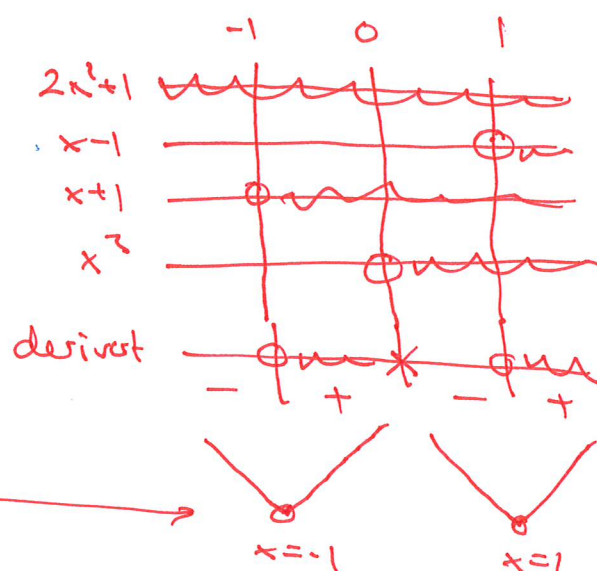 -1 0 1
2x²+1
x-1
x+1
x³
derivert
- + - +
x=-1 x=1